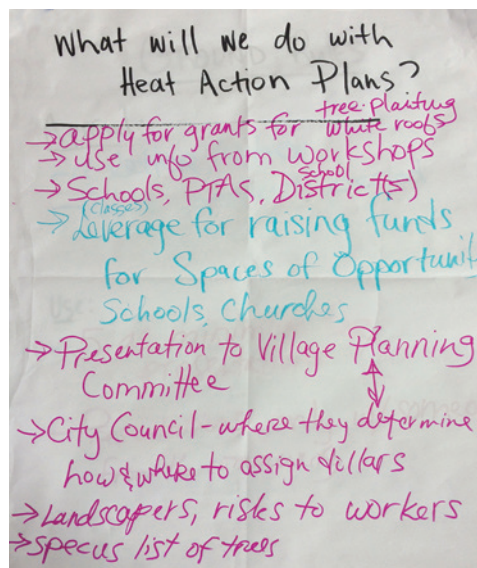 What will we do with
Heat Action Plans?
tree planting
→ apply for grants for white roofs
→ use info from workshops
school
→ Schools, PTAs, District(s)
(classes)
→ Leverage for raising funds
for Spaces of Opportunit
Schools, Churches
→ Presentation to Village Planning
Committee
→ City Council - where they determine
how & where to assign dollars
→ Landscapers, risks to workers
→ specus list of trees